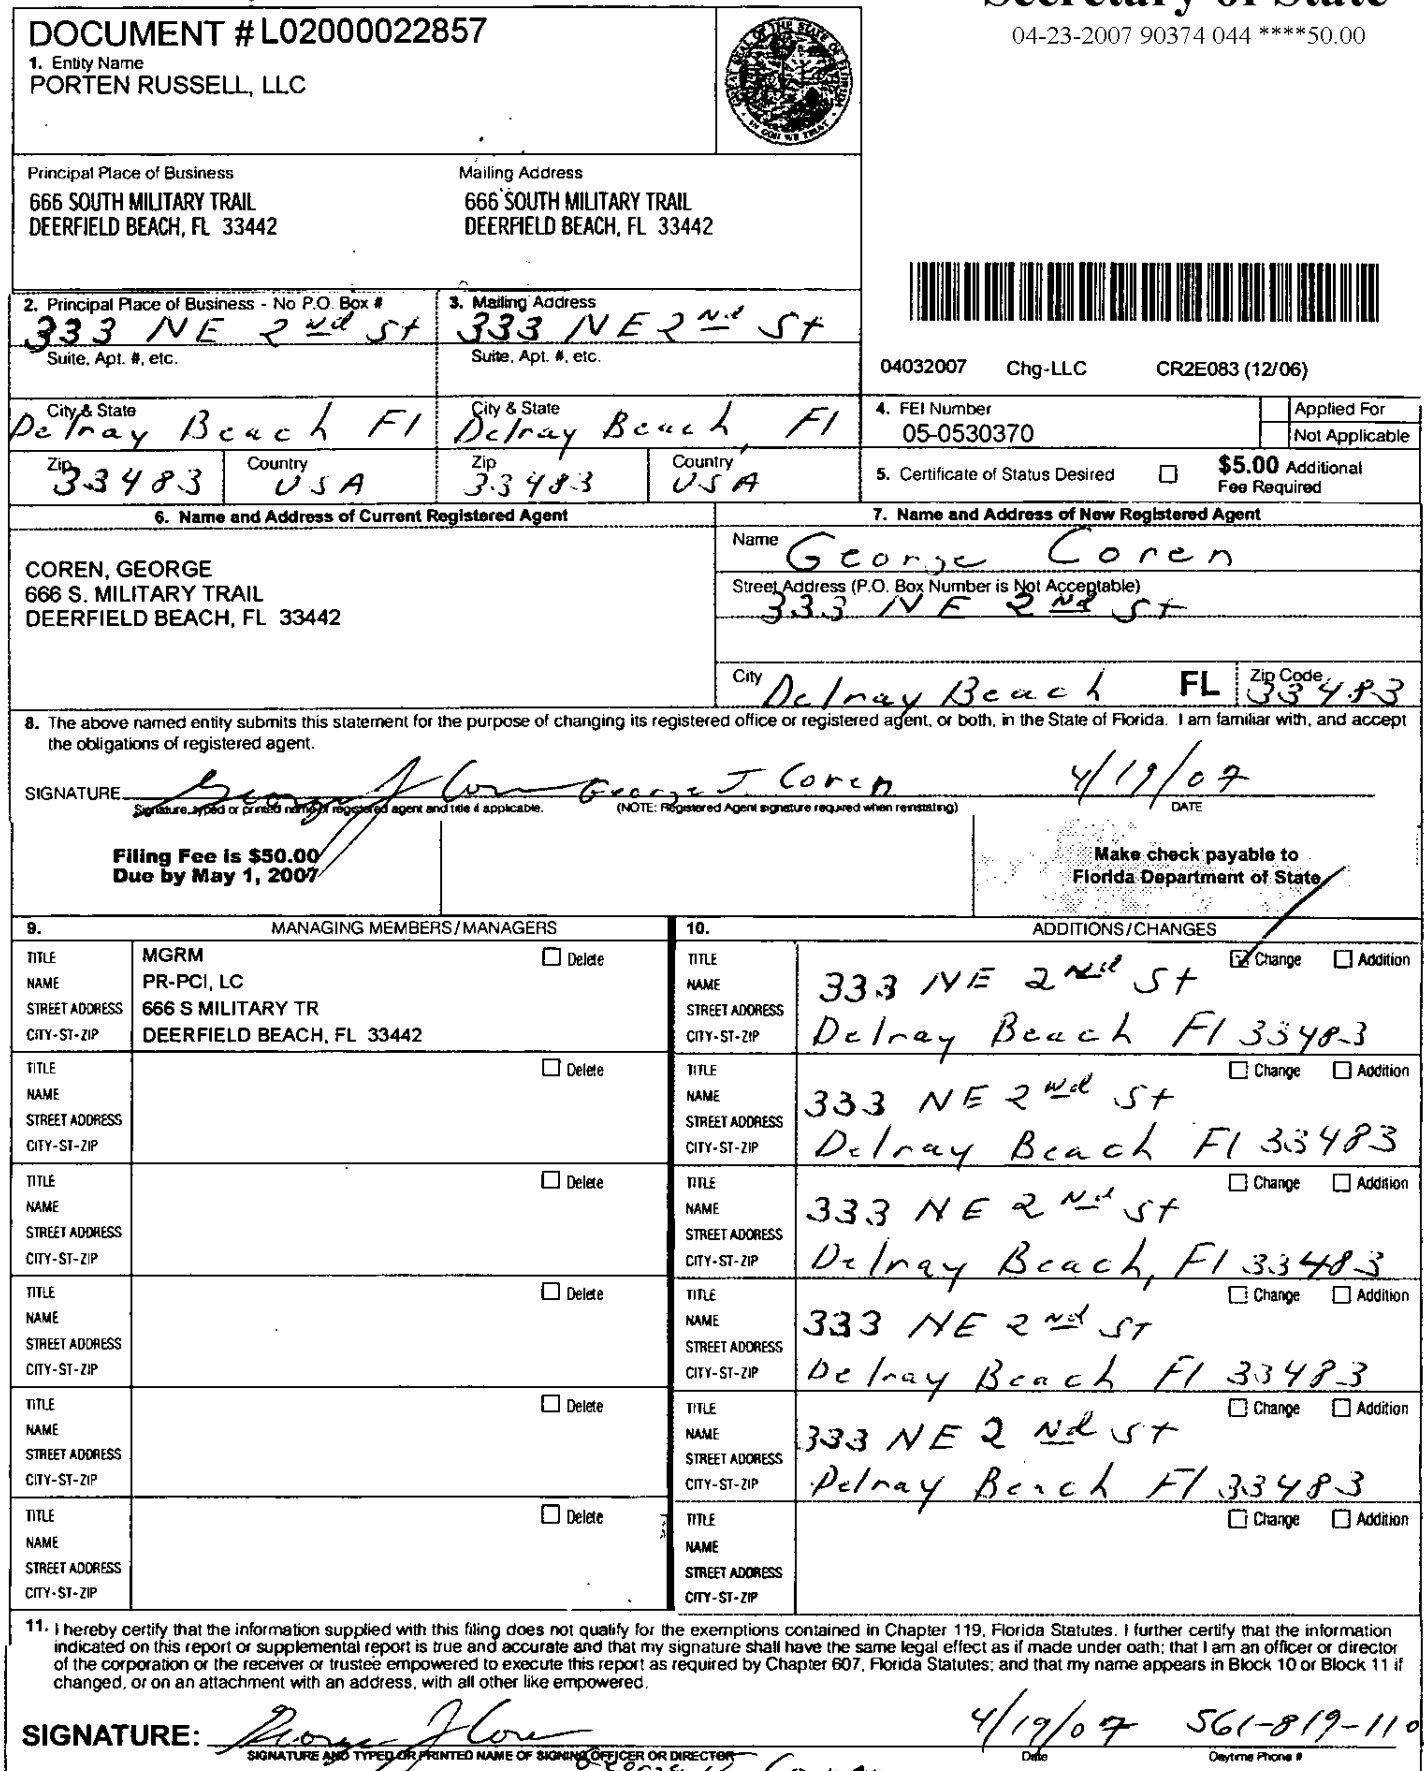 DOCUMENT # L02000022857
1. Entity Name
PORTEN RUSSELL, LLC
Secretary of State
04-23-2007 90374 044 ****50.00
Principal Place of Business
666 SOUTH MILITARY TRAIL
DEERFIELD BEACH, FL 33442
Mailing Address
666 SOUTH MILITARY TRAIL
DEERFIELD BEACH, FL 33442
2. Principal Place of Business - No P.O. Box #
333 NE 2nd St
Suite, Apt. #, etc.
City & State
Delray Beach Fl
Zip
33483
Country
USA
3. Mailing Address
333 NE 2nd St
Suite, Apt. #, etc.
City & State
Delray Beach, Fl
Zip
33483
Country
USA
04032007 Chg-LLC CR2E083 (12/06)
4. FEI Number
05-0530370
Applied For
Not Applicable
5. Certificate of Status Desired
$5.00 Additional
Fee Required
6. Name and Address of Current Registered Agent
COREN, GEORGE
666 S. MILITARY TRAIL
DEERFIELD BEACH, FL 33442
7. Name and Address of New Registered Agent
Name George Coren
Street Address (P.O. Box Number is Not Acceptable)
333 NE 2nd St
City Delray Beach FL Zip Code 33483
8. The above named entity submits this statement for the purpose of changing its registered office or registered agent, or both, in the State of Florida. I am familiar with, and accept
the obligations of registered agent.
SIGNATURE George J Coren George J Coren 4/19/07
Signature, typed or printed name of registered agent and title if applicable. (NOTE: Registered Agent signature required when reinstating) DATE
Filing Fee is $50.00
Due by May 1, 2007
Make check payable to
Florida Department of State
9. MANAGING MEMBERS/MANAGERS
TITLE MGRM Delete
NAME PR-PCI, LC
STREET ADDRESS 666 S MILITARY TR
CITY-ST-ZIP DEERFIELD BEACH, FL 33442
TITLE Delete
NAME
STREET ADDRESS
CITY-ST-ZIP
TITLE Delete
NAME
STREET ADDRESS
CITY-ST-ZIP
TITLE Delete
NAME
STREET ADDRESS
CITY-ST-ZIP
TITLE Delete
NAME
STREET ADDRESS
CITY-ST-ZIP
TITLE Delete
NAME
STREET ADDRESS
CITY-ST-ZIP
10. ADDITIONS/CHANGES
TITLE Change Addition
NAME 333 NE 2nd St
STREET ADDRESS
CITY-ST-ZIP Delray Beach Fl 33483
TITLE Change Addition
NAME 333 NE 2nd St
STREET ADDRESS
CITY-ST-ZIP Delray Beach Fl 33483
TITLE Change Addition
NAME 333 NE 2nd St
STREET ADDRESS
CITY-ST-ZIP Delray Beach, Fl 33483
TITLE Change Addition
NAME 333 NE 2nd St
STREET ADDRESS
CITY-ST-ZIP Delray Beach Fl 33483
TITLE Change Addition
NAME 333 NE 2nd St
STREET ADDRESS
CITY-ST-ZIP Delray Beach Fl 33483
TITLE Change Addition
NAME
STREET ADDRESS
CITY-ST-ZIP
11. I hereby certify that the information supplied with this filing does not qualify for the exemptions contained in Chapter 119, Florida Statutes. I further certify that the information
indicated on this report or supplemental report is true and accurate and that my signature shall have the same legal effect as if made under oath; that I am an officer or director
of the corporation or the receiver or trustee empowered to execute this report as required by Chapter 607, Florida Statutes; and that my name appears in Block 10 or Block 11 if
changed, or on an attachment with an address, with all other like empowered.
SIGNATURE: George J Coren 4/19/07 561-819-110
SIGNATURE AND TYPED OR PRINTED NAME OF SIGNING OFFICER OR DIRECTOR Date Daytime Phone #